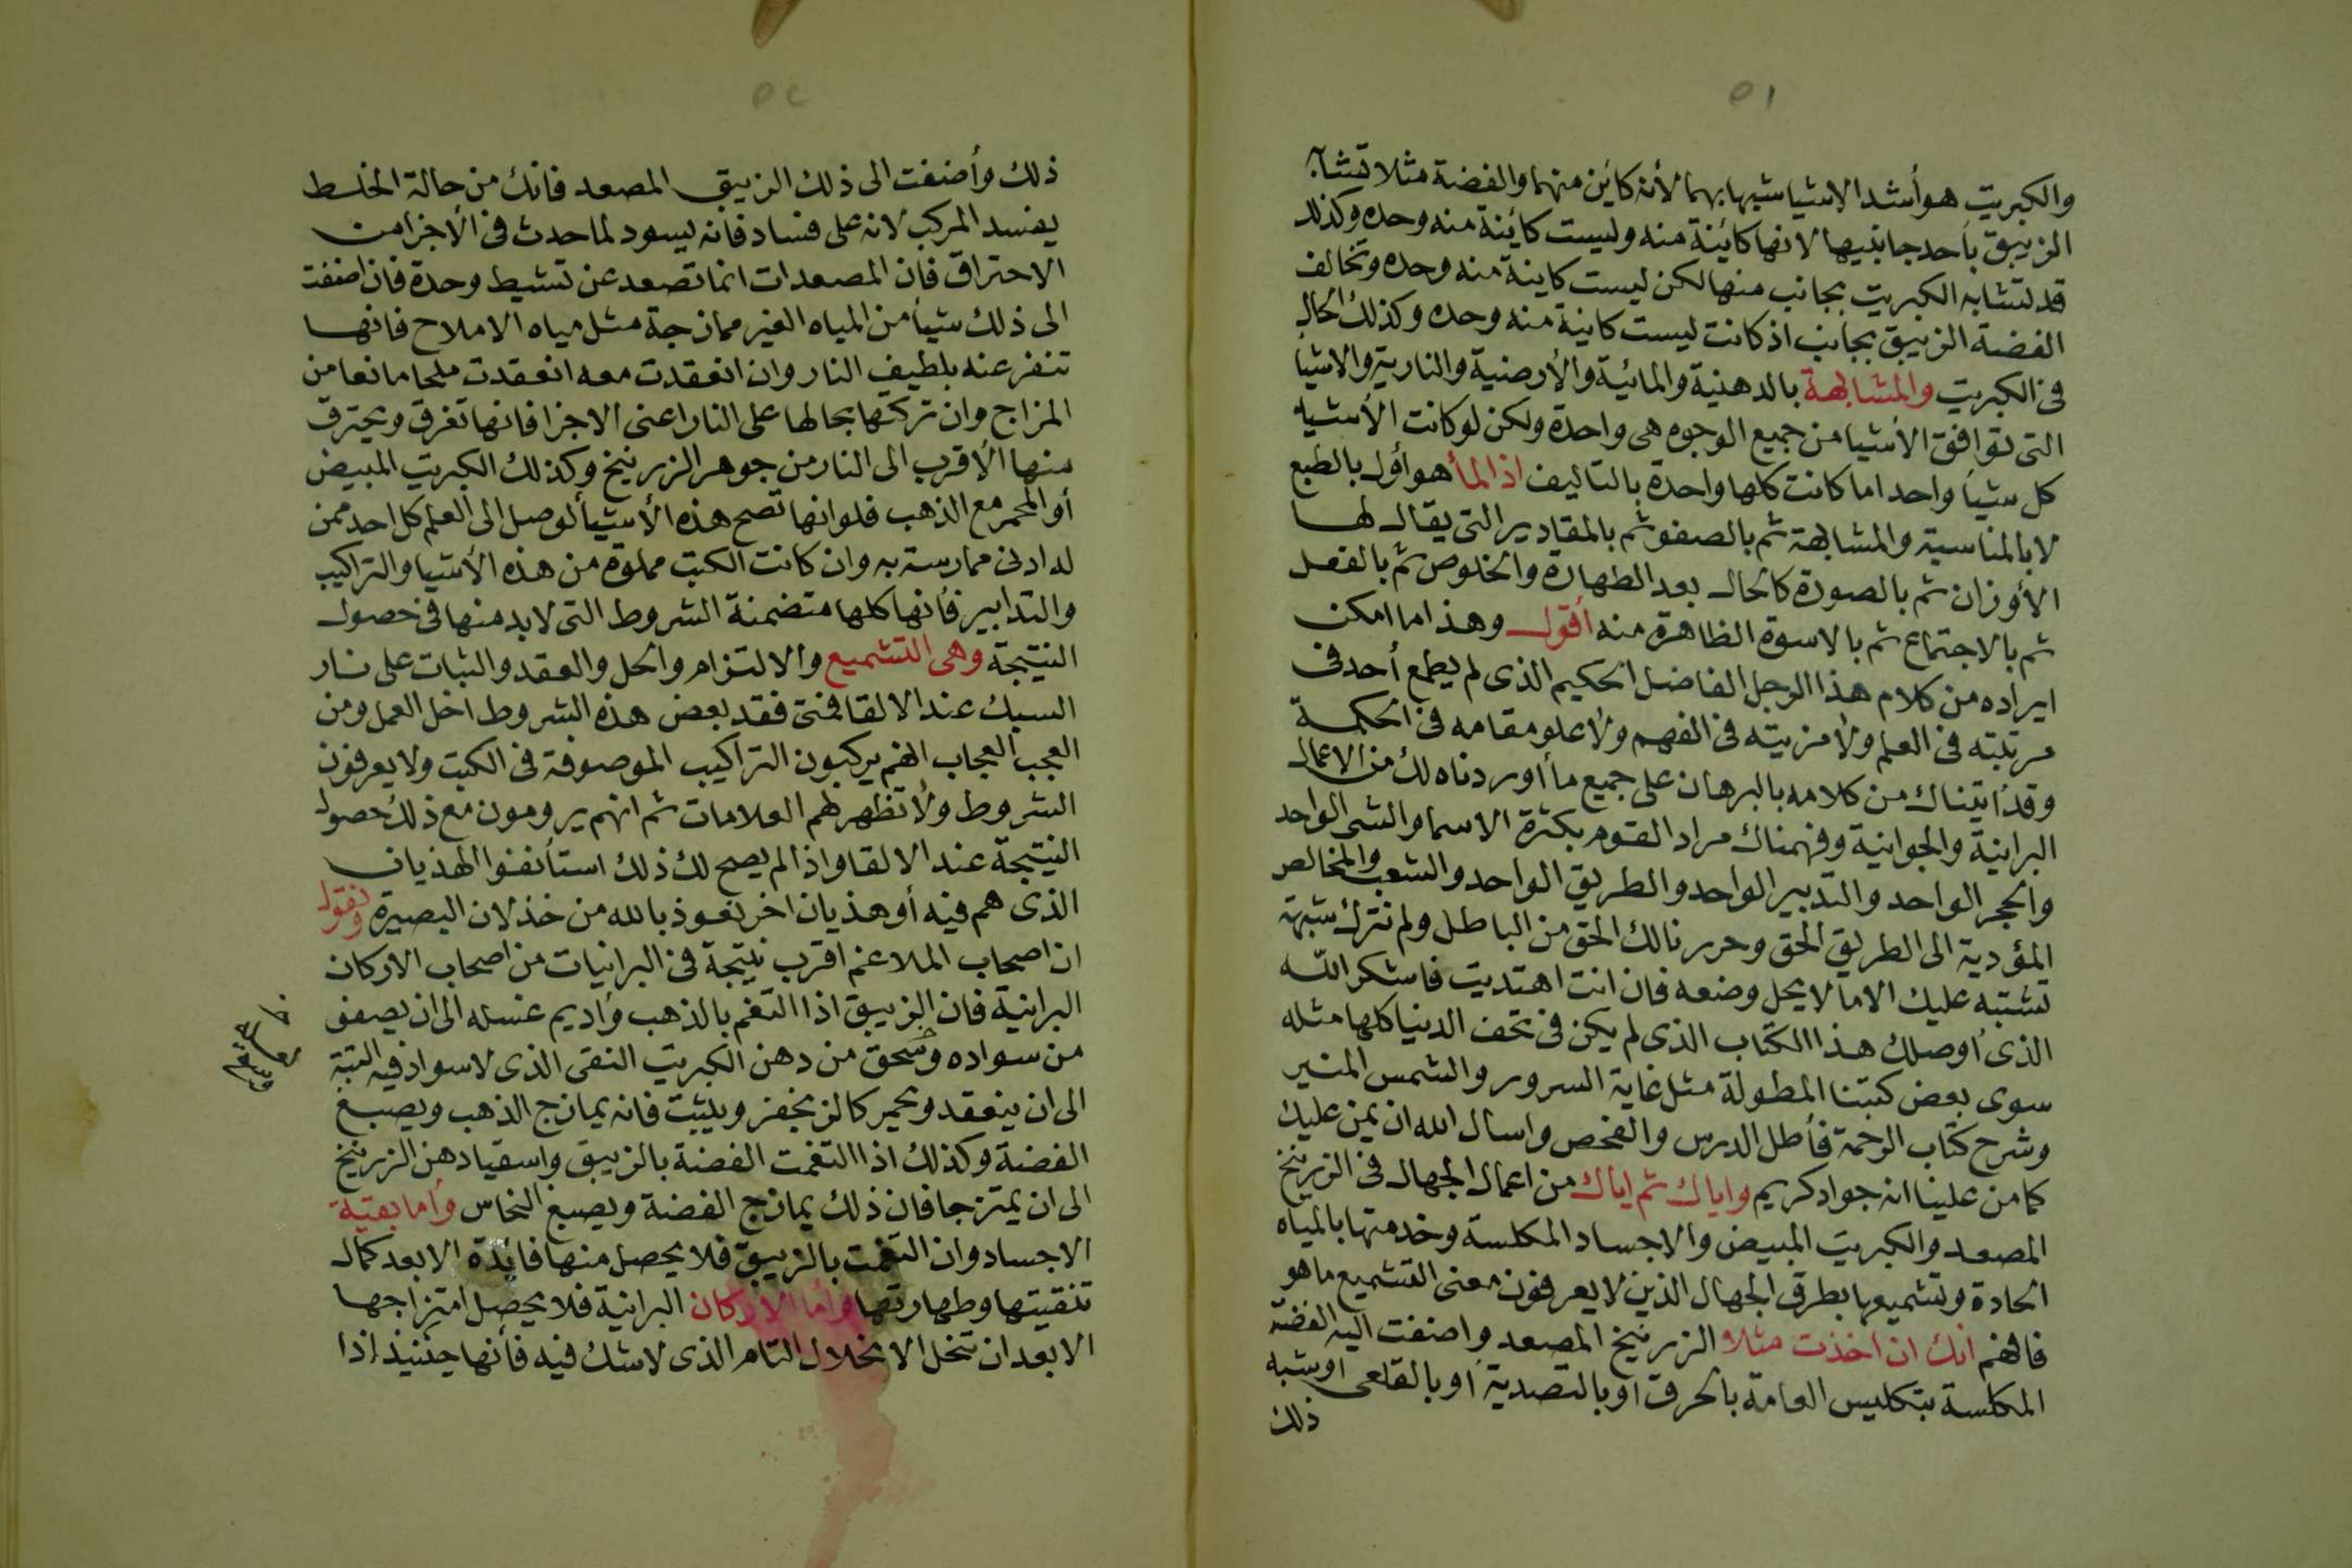 ٥١
والكبريت هو أشد الاشيا شبها بهما لأنه كاين منهما والفضة مثلا تشابه
الزيبق بأحد جانبيها لانها كائنة منه وليست كائنة منه وحده وكذلك
قد تشابه الكبريت بجانب منها لكن ليست كاينة منه وحده وتخالف
الفضة الزيبق بجانب اذ كانت ليست كاينة منه وحده وكذلك الحال
فى الكبريت والمشابهة بالدهنية والمائية والأرضية والنارية والاشيا
التى توافق الأشيا من جميع الوجوه هى واحدة ولكن لو كانت الأشيا
كل شيأ واحد اما كانت كلها واحدة بالتاليف اذا لمأ هو أول بالطبع
لا بالمناسبة والمشابهة ثم بالصفو ثم بالمقادير التى يقال لها
الأوزان ثم بالصورة كالحال بعد الطهارة والخلوص ثم بالفعل
ثم بالاجتماع ثم بالاسوة الظاهرة منه أقول وهذا ما امكن
ايراده من كلام هذا الرجل الفاضل الحكيم الذى لم يطمع أحد فى
مرتبته فى العلم ولا مزيته فى الفهم ولا علو مقامه فى الحكمة
وقد أتيناك من كلامه بالبرهان على جميع ما أوردناه لك من الاعمال
البرانية والجوانية وفهمناك مراد القوم بكثرة الاسما والشى الواحد
والحجر الواحد والتدبير الواحد والطريق الواحد والشعب والمخالص
المؤدية الى الطريق الحق وحررنا لك الحق من الباطل ولم نترك شبهة
تشتبه عليك الاما لا يحل وضعه فان انت اهتديت فاشكر الله
الذى أوصلك هذا الكتاب الذى لم يكن فى تحف الدنيا كلها مثله
سوى بعض كتبنا المطولة مثل غاية السرور والشمس المنير
وشرح كتاب الرحمة فأطل الدرس والفحص واسال الله ان يمن عليك
كما من علينا انه جواد كريم واياك ثم اياك من اعمال الجهال فى الزرنيخ
المصعد والكبريت المبيض والاجساد المكلسة وخدمتها بالمياه
الحادة وتشميعها بطرق الجهال الذين لا يعرفون معنى التشميع ما هو
فافهم انك ان اخذت مثلا الزرنيخ المصعد واضفت اليه الفضة
المكلسة بتكليس العامة بالحرق أو بالتصدية أو بالقلعى أو شبه
ذلك
٥٢
ذلك وأضفت الى ذلك الزيبق المصعد فانك من حالة الخلط
يفسد المركب لانه على فساد فانه يسود لما حدث فى الأجزا من
الاحتراق فان المصعدات انما تصعد عن تشيط وحدة فان اضفت
الى ذلك شيأ من المياه الغير ممازجة مثل مياه الاملاح فانها
تنفر عنه بلطيف النار وان انعقدت معه انعقدت ملحا مانعا من
المزاج وان تركتها بحالها على النار اعنى الاجزا فانها تغرق ويحترق
منها الأقرب الى النار من جوهر الزرنيخ وكذلك الكبريت المبيض
أو المحمر مع الذهب فلو انها تصح هذه الأشيأ لوصل الى العلم كل احد ممن
له ادنى ممارسة به وان كانت الكتب مملوة من هذه الأشيا والتراكيب
والتدابير فانها كلها متضمنة الشروط التى لابد منها فى حصول
النتيجة وهى التشميع والالتزام والحل والعقد والثبات على نار
السبك عند الالقا فمتى فقد بعض هذه الشروط اخل العمل ومن
العجب العجاب انهم يركبون التراكيب الموصوفة فى الكتب ولا يعرفون
الشروط ولا تظهر لهم العلامات ثم انهم يرومون مع ذلك حصول
النتيجة عند الالقا واذا لم يصح لك ذلك استأنفوا الهذيان
الذى هم فيه أو هذيان اخر نعوذ بالله من خذلان البصيرة ونقول
ان اصحاب الملاغم اقرب نتيجة فى البرانيات من اصحاب الاركان
البرانية فان الزيبق اذا التغم بالذهب وأديم غسله الى ان يصفى
من سواده وسحق من دهن الكبريت النقى الذى لا سواد فيه البتة
الى ان ينعقد ويحمر كالزنجفر ويثبت فانه يمازج الذهب ويصبغ
الفضة وكذلك اذا التغمت الفضة بالزيبق واسقيا دهن الزرنيخ
الى ان يمتزجا فان ذلك يمازج الفضة ويصبغ النحاس وأما بقية
الاجساد وان التغمت بالزيبق فلا يحصل منها فائدة الا بعد كمال
تنقيتها وطهارتها وأما الاركان البرانية فلا يحصل امتزاجها
الا بعد ان تنحل الانحلال التام الذى لا شك فيه فأنها حينئيذ اذا